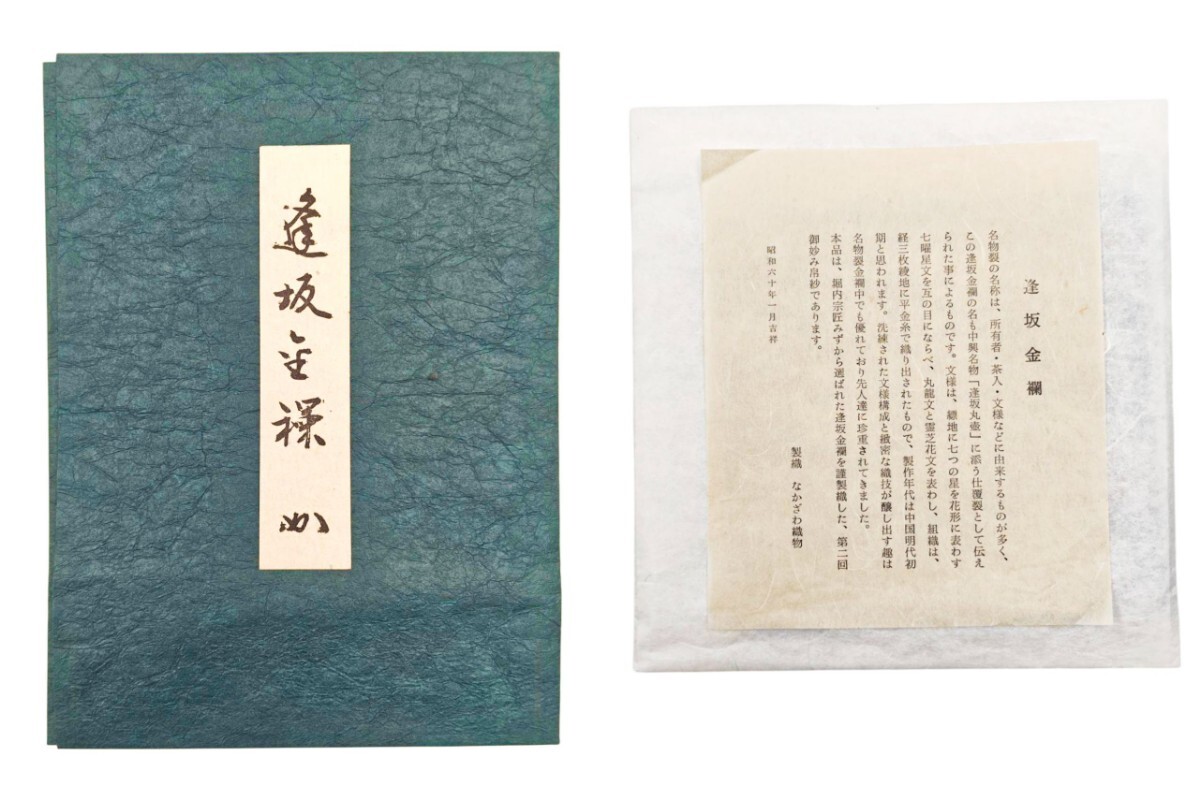 逢坂金襴
逢坂金襴
名物裂の名称は、所有者・茶入・文様などに由来するものが多く、
この逢坂金襴の名も中興名物「逢坂丸壷」に添う仕覆裂として伝え
られた事によるものです。文様は、縹地に七つの星を花形に表わす
七曜星文を互の目にならべ、丸龍文と霊芝花文を表わし、組織は、
経三枚綾地に平金糸で織り出されたもので、製作年代は中国明代初
期と思われます。洗練された文様構成と緻密な織技が醸し出す趣は
名物裂金襴中でも優れており先人達に珍重されてきました。
本品は、堀内宗匠みずから選ばれた逢坂金襴を謹製織した、第二回
御好み帛紗であります。
昭和六十年一月吉祥
製織　なかざわ織物